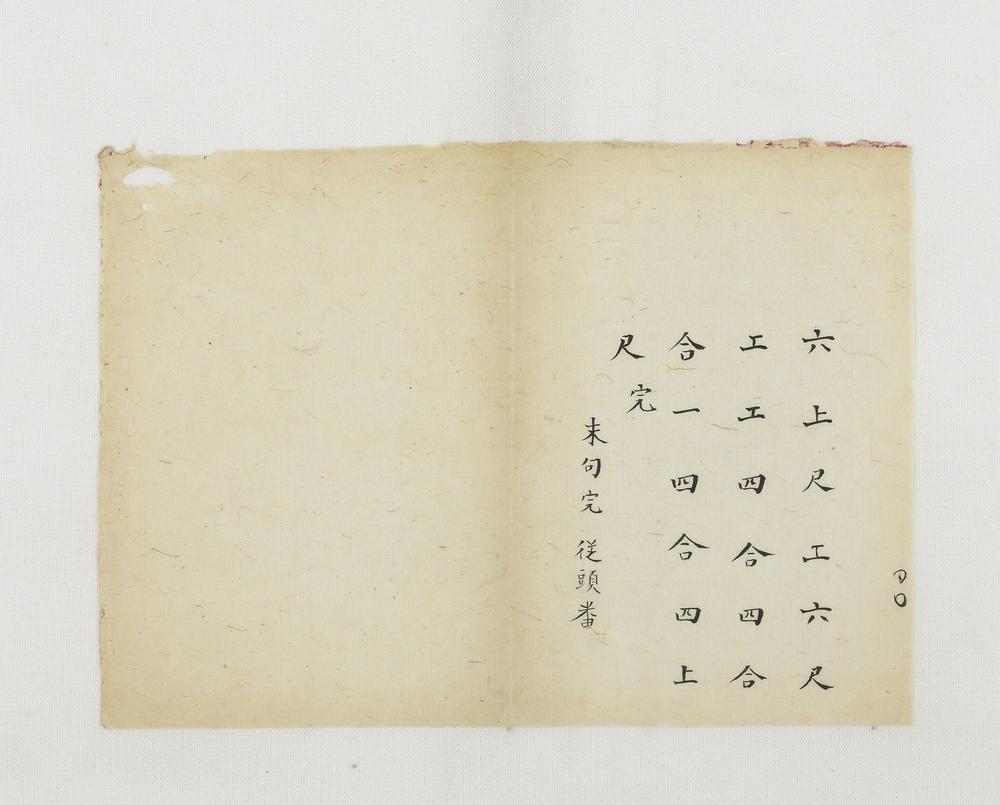 六上尺工六尺
工工四合四合
合一四合四上
尺完
末句完 従頭番